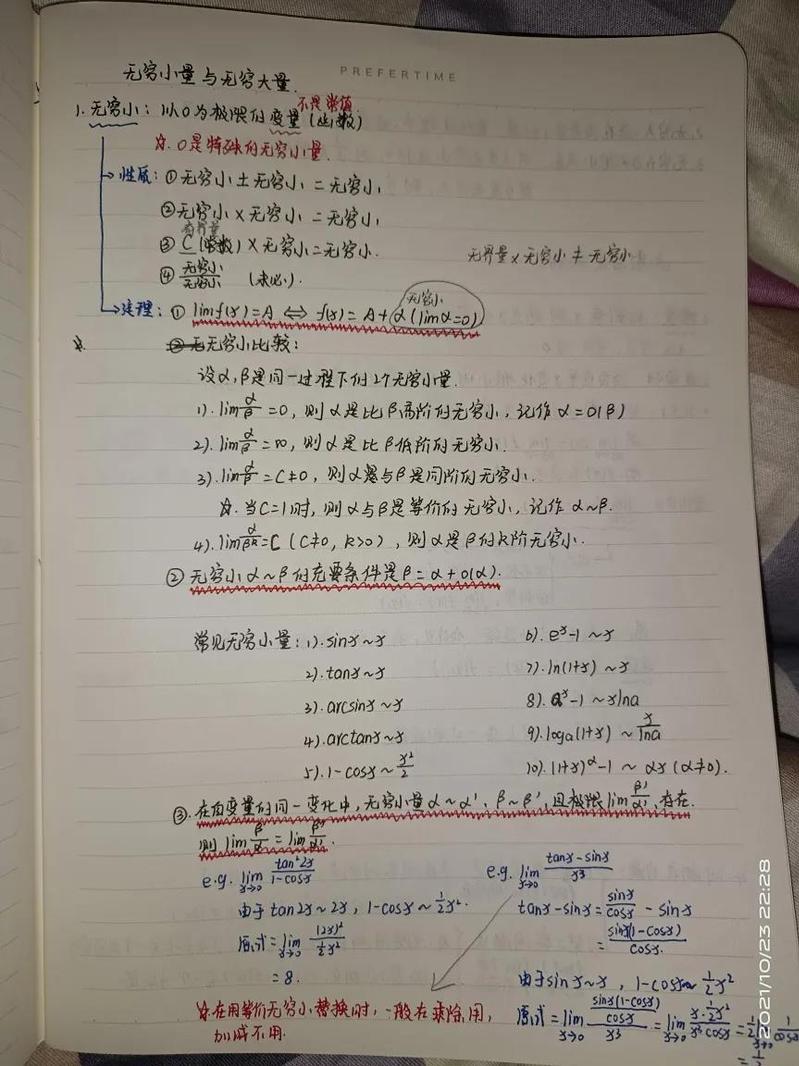 PREFERTIME
无穷小量与无穷大量.
不是常值
1. 无穷小：以0为极限的变量(函数)
☆. 0是特殊的无穷小量.
→性质：①无穷小±无穷小=无穷小
②无穷小×无穷小=无穷小
有界量
③ C(常数)×无穷小=无穷小.
无界量×无穷小≠无穷小
④ 无穷小/无穷小 (未必).
→定理：① limf(x)=A ⟺ f(x)=A+α(limα=0)
无穷小
☆. 无穷小比较：
设α,β是同一过程下的2个无穷小量.
1). lim α/β=0, 则α是比β高阶的无穷小, 记作α=o(β)
2). lim α/β=∞, 则α是比β低阶的无穷小.
3). lim α/β=C≠0, 则α与β是同阶的无穷小.
☆. 当C=1时, 则α与β是等价的无穷小, 记作α~β.
4). lim α/βᵏ=C (C≠0, k>0), 则α是β的k阶无穷小.
② 无穷小α~β的充要条件是β=α+o(α).
常见无穷小量：1). sinx~x
2). tanx~x
3). arcsinx~x
4). arctanx~x
5). 1-cosx~x²/2
6). eˣ-1~x
7). ln(1+x)~x
8). aˣ-1~xlna
9). loga(1+x)~x/lna
10). (1+x)^α-1~αx (α≠0).
③. 在自变量的同一变化中, 无穷小量α~α', β~β', 且极限lim β'/α' 存在.
则lim β/α=lim β'/α'.
e.g. lim x→0 tan²2x/(1-cosx)
由于tan2x~2x, 1-cosx~½x².
原式=lim x→0 (2x)²/(½x²)
=8.
☆在用等价无穷小替换时, 一般在乘除用,
加减不用.
e.g. lim x→0 (tanx-sinx)/x³
tanx-sinx=sinx/cosx-sinx
=sinx(1-cosx)/cosx.
由于sinx~x, 1-cosx~½x²
原式=lim x→0 (sinx(1-cosx)/cosx)/x³=lim x→0 (x·½x²)/(x³cosx)=½ lim x→0 1/cosx
=½
2021/10/23 22:28